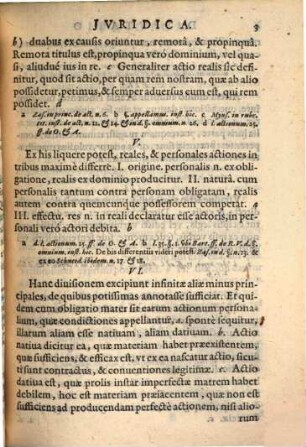 JVRIDICA. 9
b) duabus ex causis oriuntur, remotâ, & propinquâ.
Remota titulus est, propinqua verò dominium, vel qua-
si, aliudué ius in re. c Generaliter actio realis sic defi-
nitur, quod sit actio, per quam rem nostram, quæ ab alio
possidetur, petimus, & semper aduersus eum est, qui rem
possidet. d
V.
Ex his liquere potest, reales, & personales actiones in
tribus maximè differre. I. origine. personalis n. ex obli-
gatione, realis ex dominio producitur. II. naturâ. cum
personalis tantum contra personam obligatam, realis
autem contra quemcunque possessorem competat. a
III. effectu. res n. in reali declaratur esse actoris, in per-
sonali verò actori debita. b
VI.
Hanc diuisionem excipiunt infinitæ aliæ minus prin-
cipales, de quibus potissimas annotasse sufficiat. Et qui-
dem cum obligatio mater sit earum actionum personalium,
quæ condictiones appellantur, a sponte sequitur,
illarum aliam esse natiuam, aliam datiuam. b. Actio
natiua dicitur ea, quæ materiam habet præexistentem,
quæ sufficiens, & efficax est, vt ex ea nascatur actio, sicu-
ti sunt contractus, & conuentiones legitimæ. c. Actio
datiua est, quæ prolis instar imperfectæ matrem habet
debilem, hoc est materiam præiacentem, quæ non est
sufficiens ad producendam perfectè actionem, nisi alio-
rum